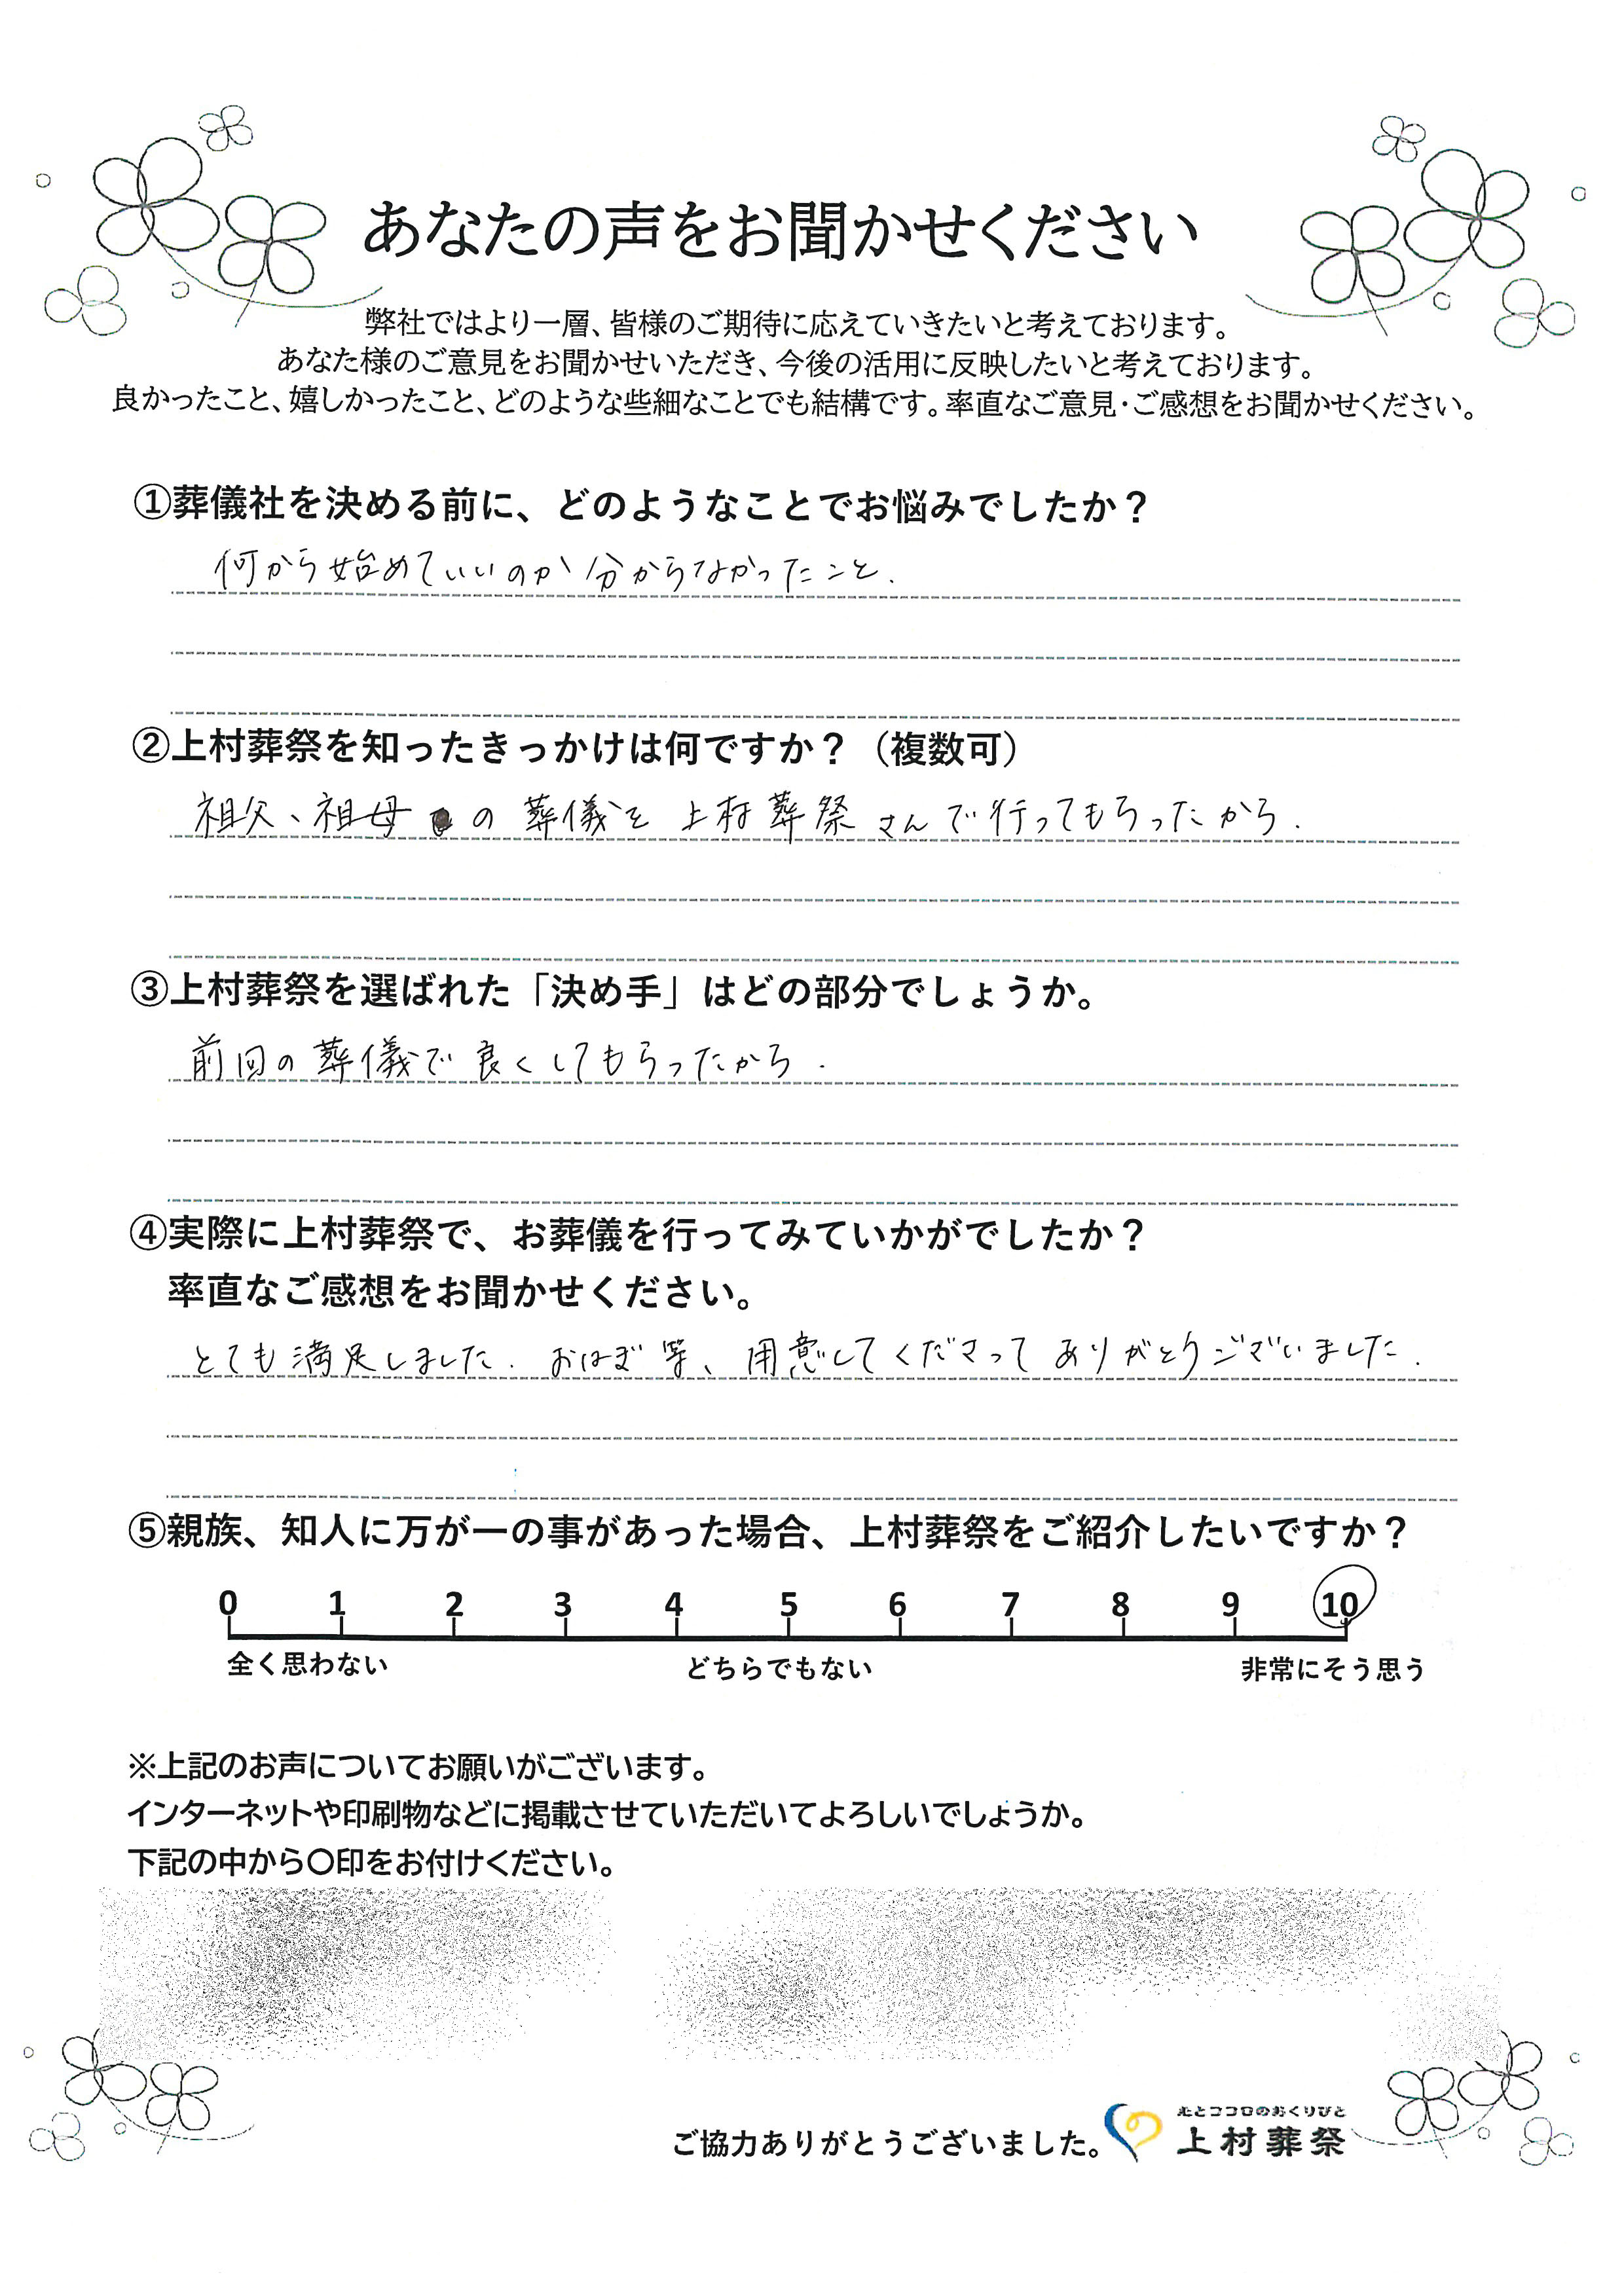 あなたの声をお聞かせください
弊社ではより一層、皆様のご期待に応えていきたいと考えております。
あなた様のご意見をお聞かせいただき、今後の活用に反映したいと考えております。
良かったこと、嬉しかったこと、どのような些細なことでも結構です。率直なご意見・ご感想をお聞かせください。
①葬儀社を決める前に、どのようなことでお悩みでしたか？
何から始めていいのか分からなかったこと.
②上村葬祭を知ったきっかけは何ですか？（複数可）
祖父、祖母の葬儀を上村葬祭さんで行ってもらったから.
③上村葬祭を選ばれた「決め手」はどの部分でしょうか。
前回の葬儀で良くしてもらったから.
④実際に上村葬祭で、お葬儀を行ってみていかがでしたか？
率直なご感想をお聞かせください。
とても満足しました. おはぎ等、用意してくださってありがとうございました.
⑤親族、知人に万が一の事があった場合、上村葬祭をご紹介したいですか？
0 1 2 3 4 5 6 7 8 9 10
全く思わない どちらでもない 非常にそう思う
※上記のお声についてお願いがございます。
インターネットや印刷物などに掲載させていただいてよろしいでしょうか。
下記の中から〇印をお付けください。
ご協力ありがとうございました。
心とココロのおくりびと
上村葬祭